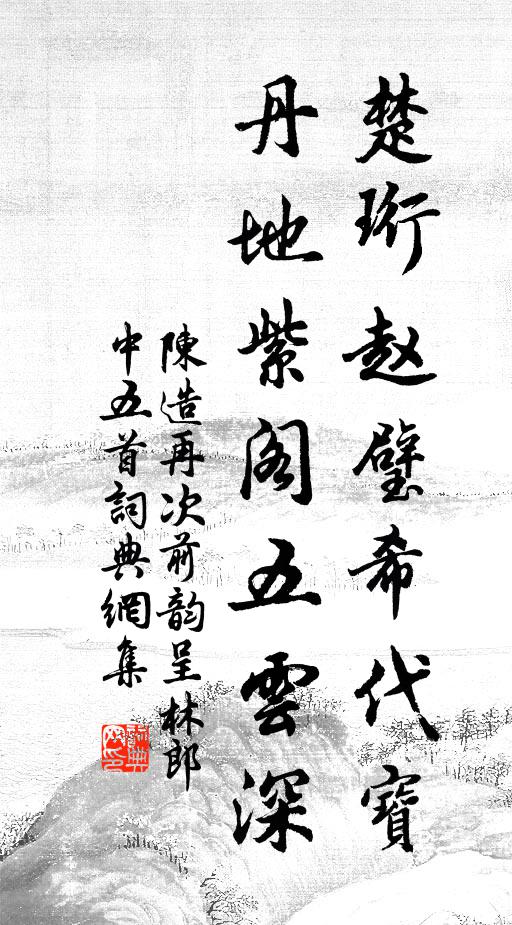 楚珩赵璧希代寶
丹地紫阁五雲深
陳造再次前韵呈林郎
中五首詞典網集